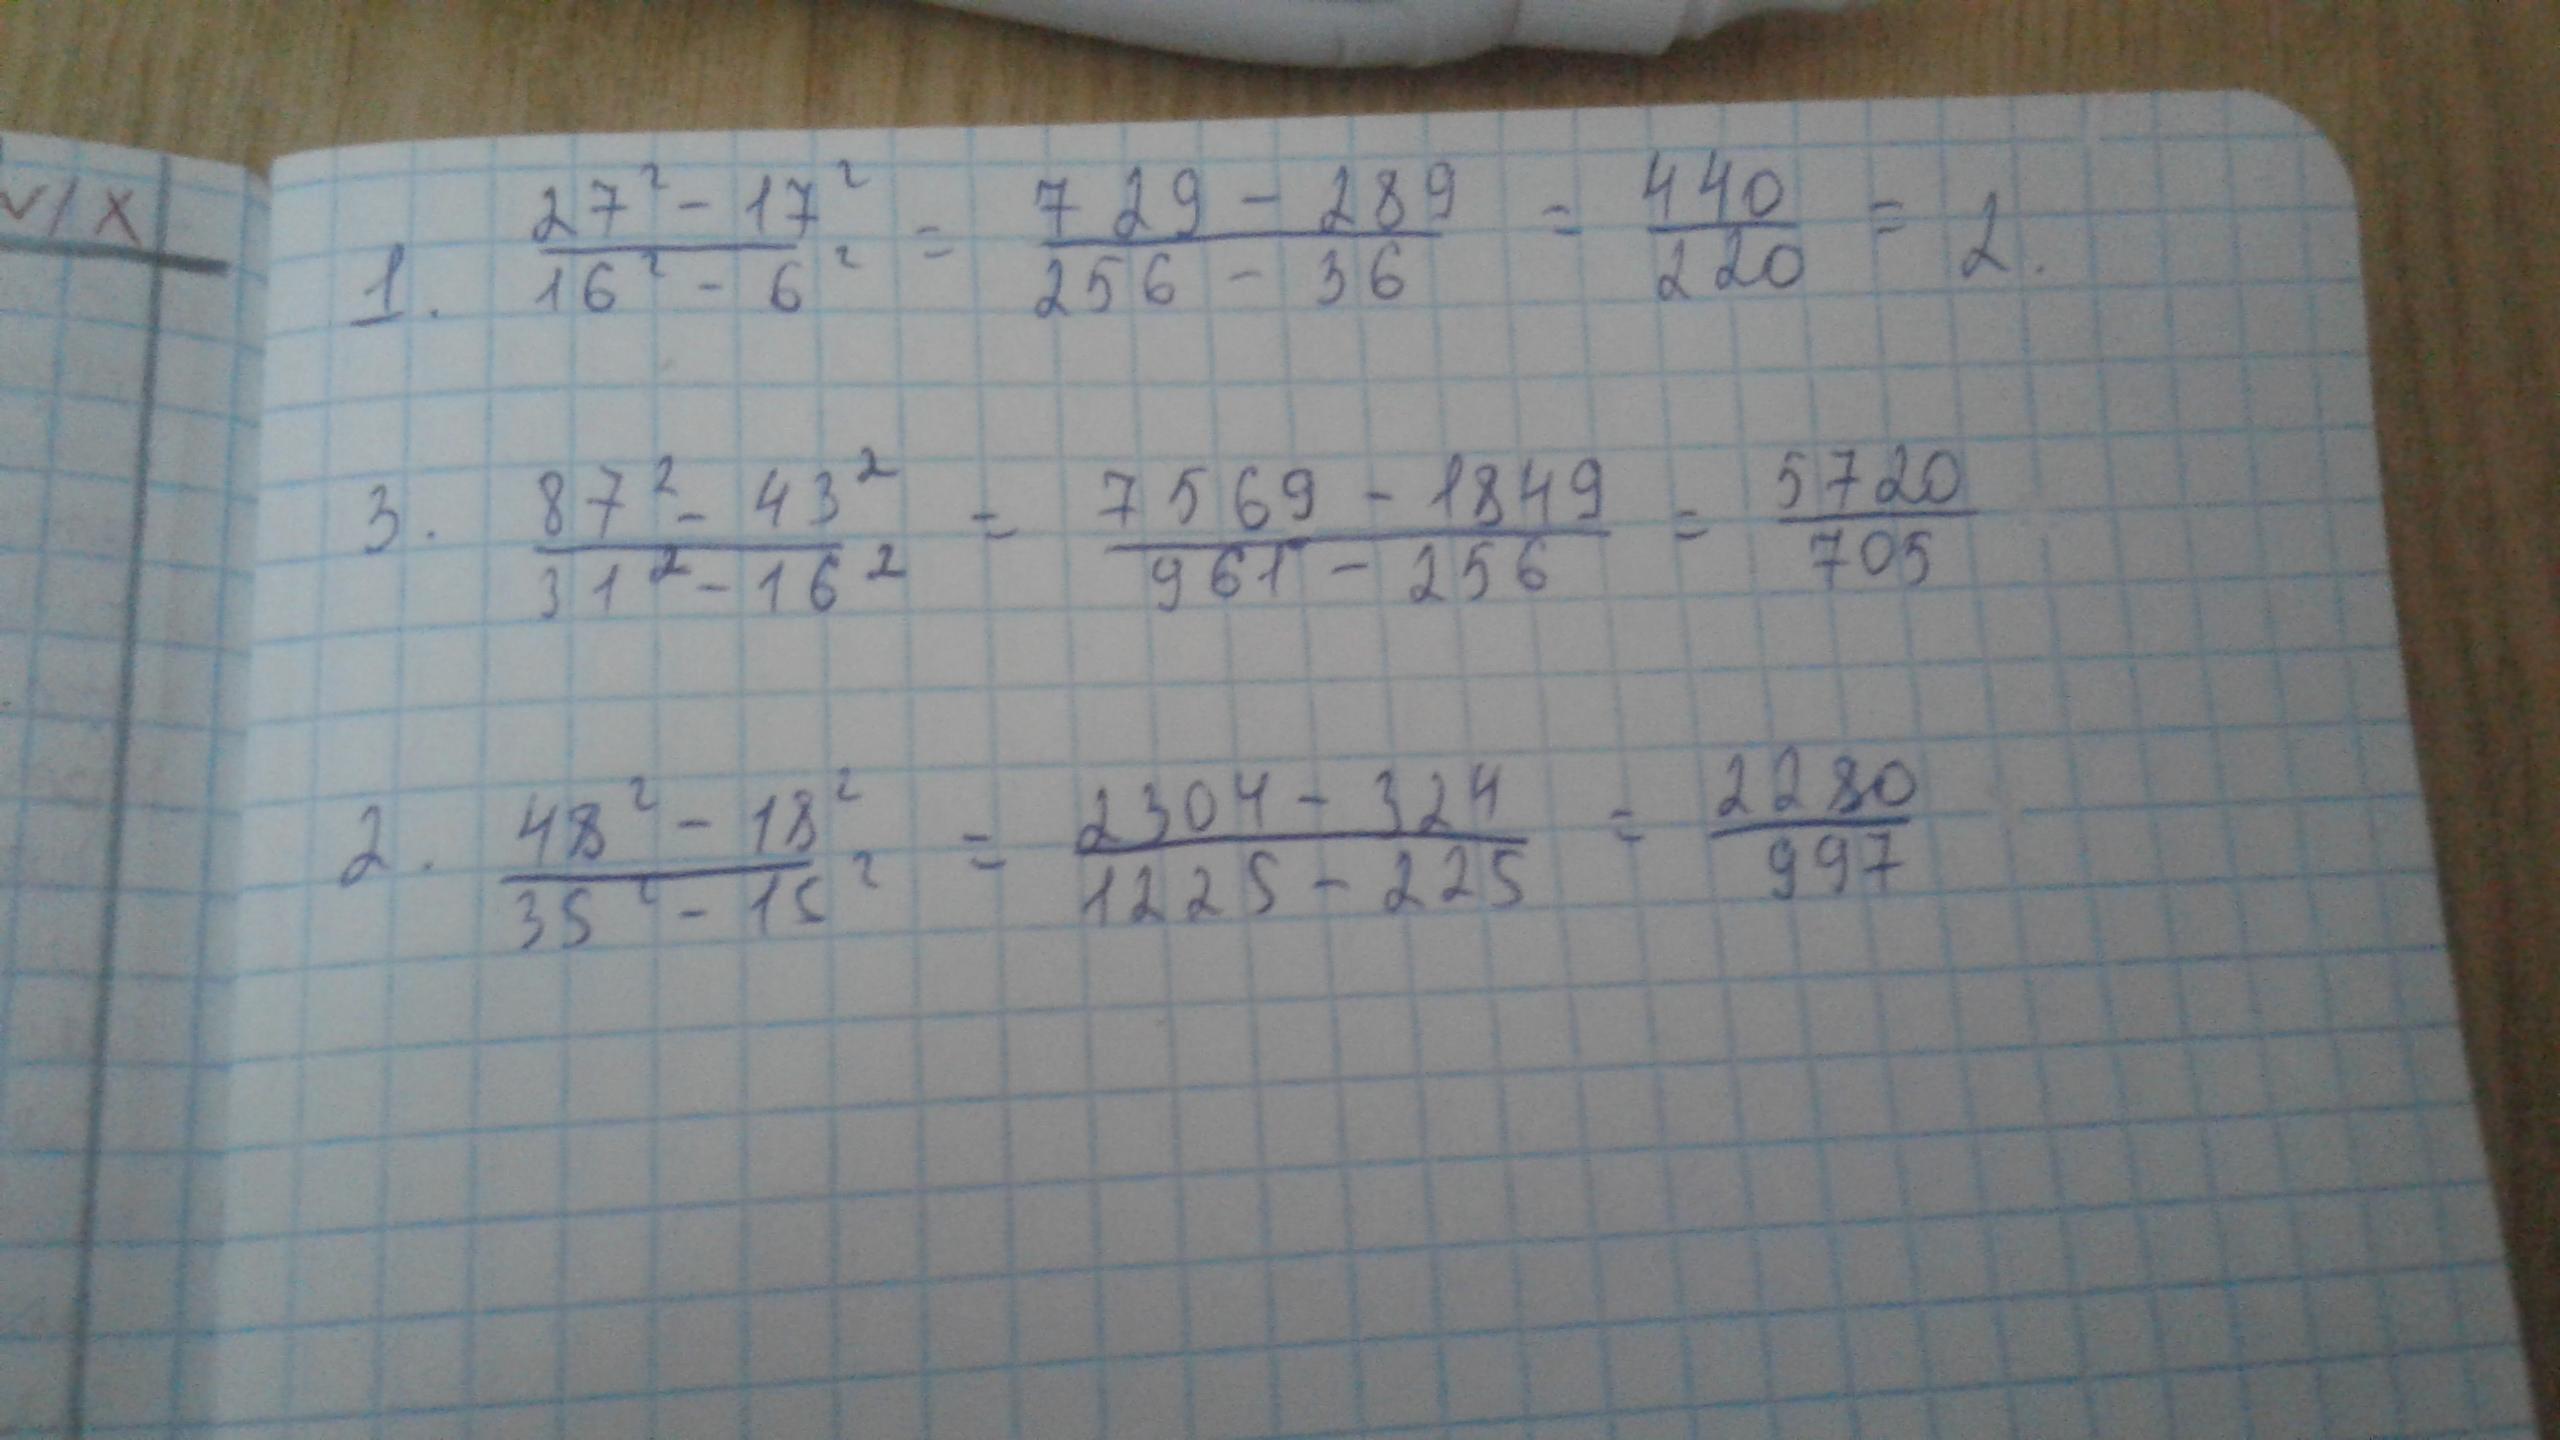 √/X
1. 27² - 17² / 16² - 6² = 729 - 289 / 256 - 36 = 440 / 220 = 2.
3. 87² - 43² / 31² - 16² = 7569 - 1849 / 961 - 256 = 5720 / 705
2. 48² - 18² / 35² - 15² = 2304 - 324 / 1225 - 225 = 2280 / 997